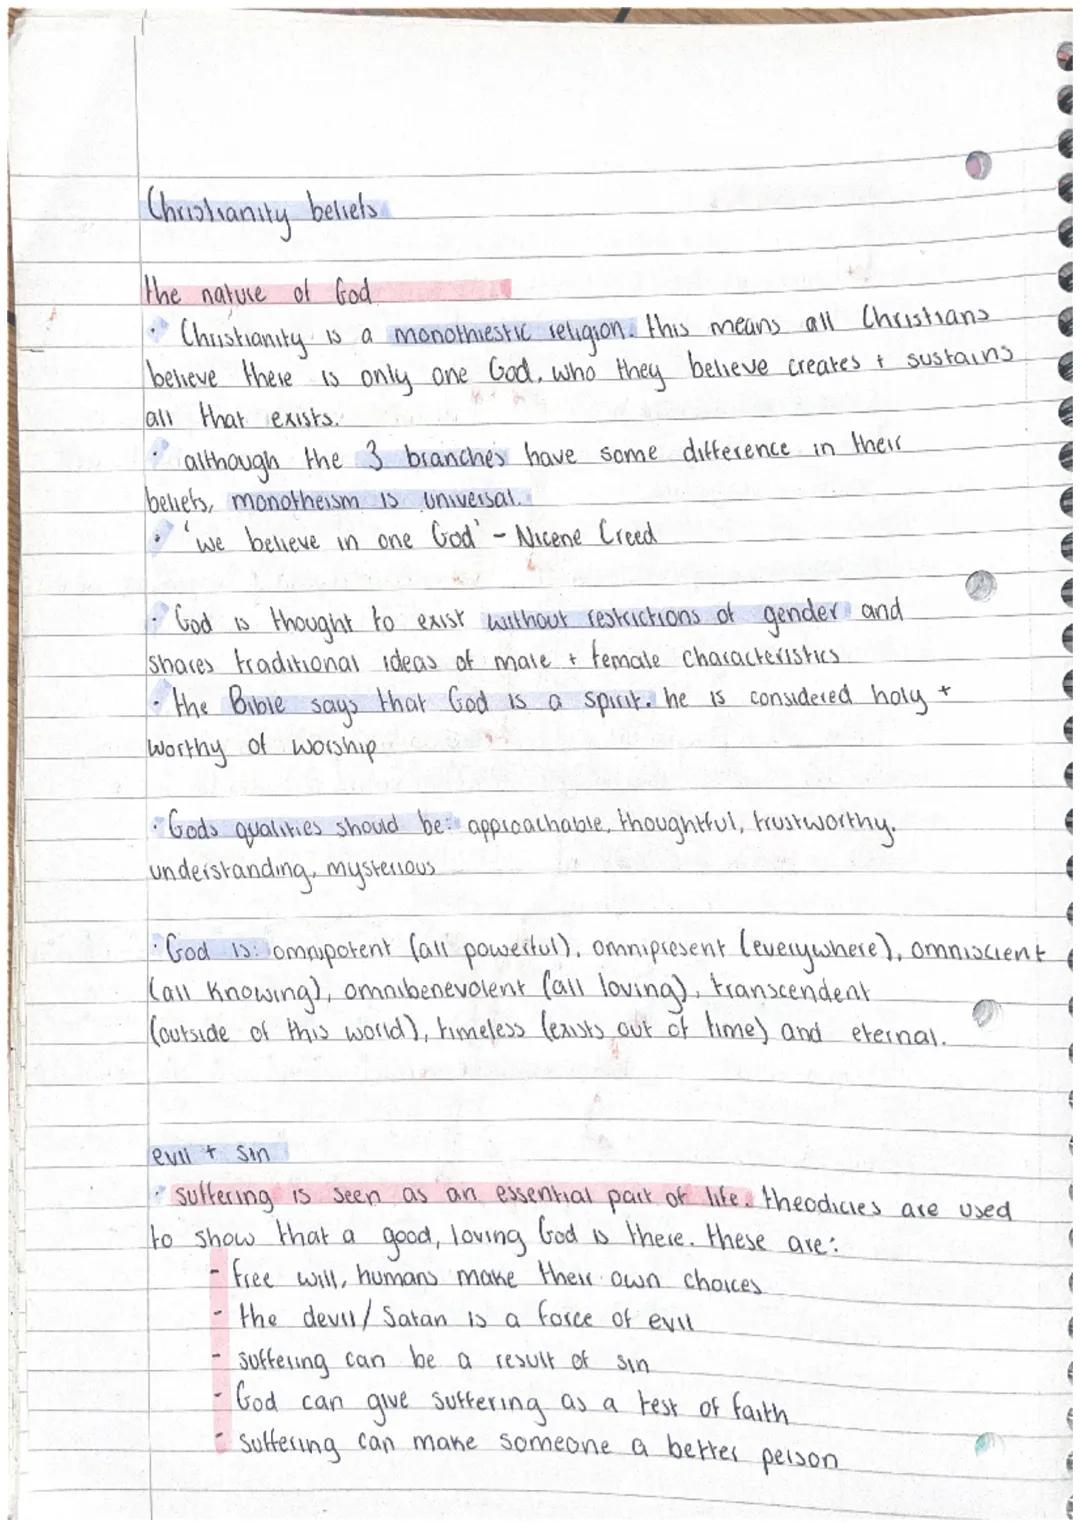 Christianity beliefs
the nature of God
· Christianity is a monothiestic religion. this means all Christians
believe there is only one God, who they believe creates + sustains
all that exists.
· although the 3 branches have some difference in their
beliefs, monotheism is universal.
· 'we believe in one God' - Nicene Creed
· God is thought to exist without restrictions of gender and
shares traditional ideas of male + female characteristics
· the Bible says that God is a spirit. he is considered holy +
worthy of worship
· Gods qualities should be: approachable, thoughtful, trustworthy,
understanding, mysterious
· God is: omnipotent (all powerful), omnipresent (everywhere), omniscient
(all knowing), omnibenevolent (all loving), transcendent
(outside of this world), timeless (exists out of time) and eternal.
evil + sin
· suffering is seen as an essential part of life. theodicies are used
to show that a good, loving God is there. these are:
- free will, humans make their own choices
- the devil/Satan is a force of evil
- suffering can be a result of sin
- God can give suffering as a test of faith
- suffering can make someone a better person